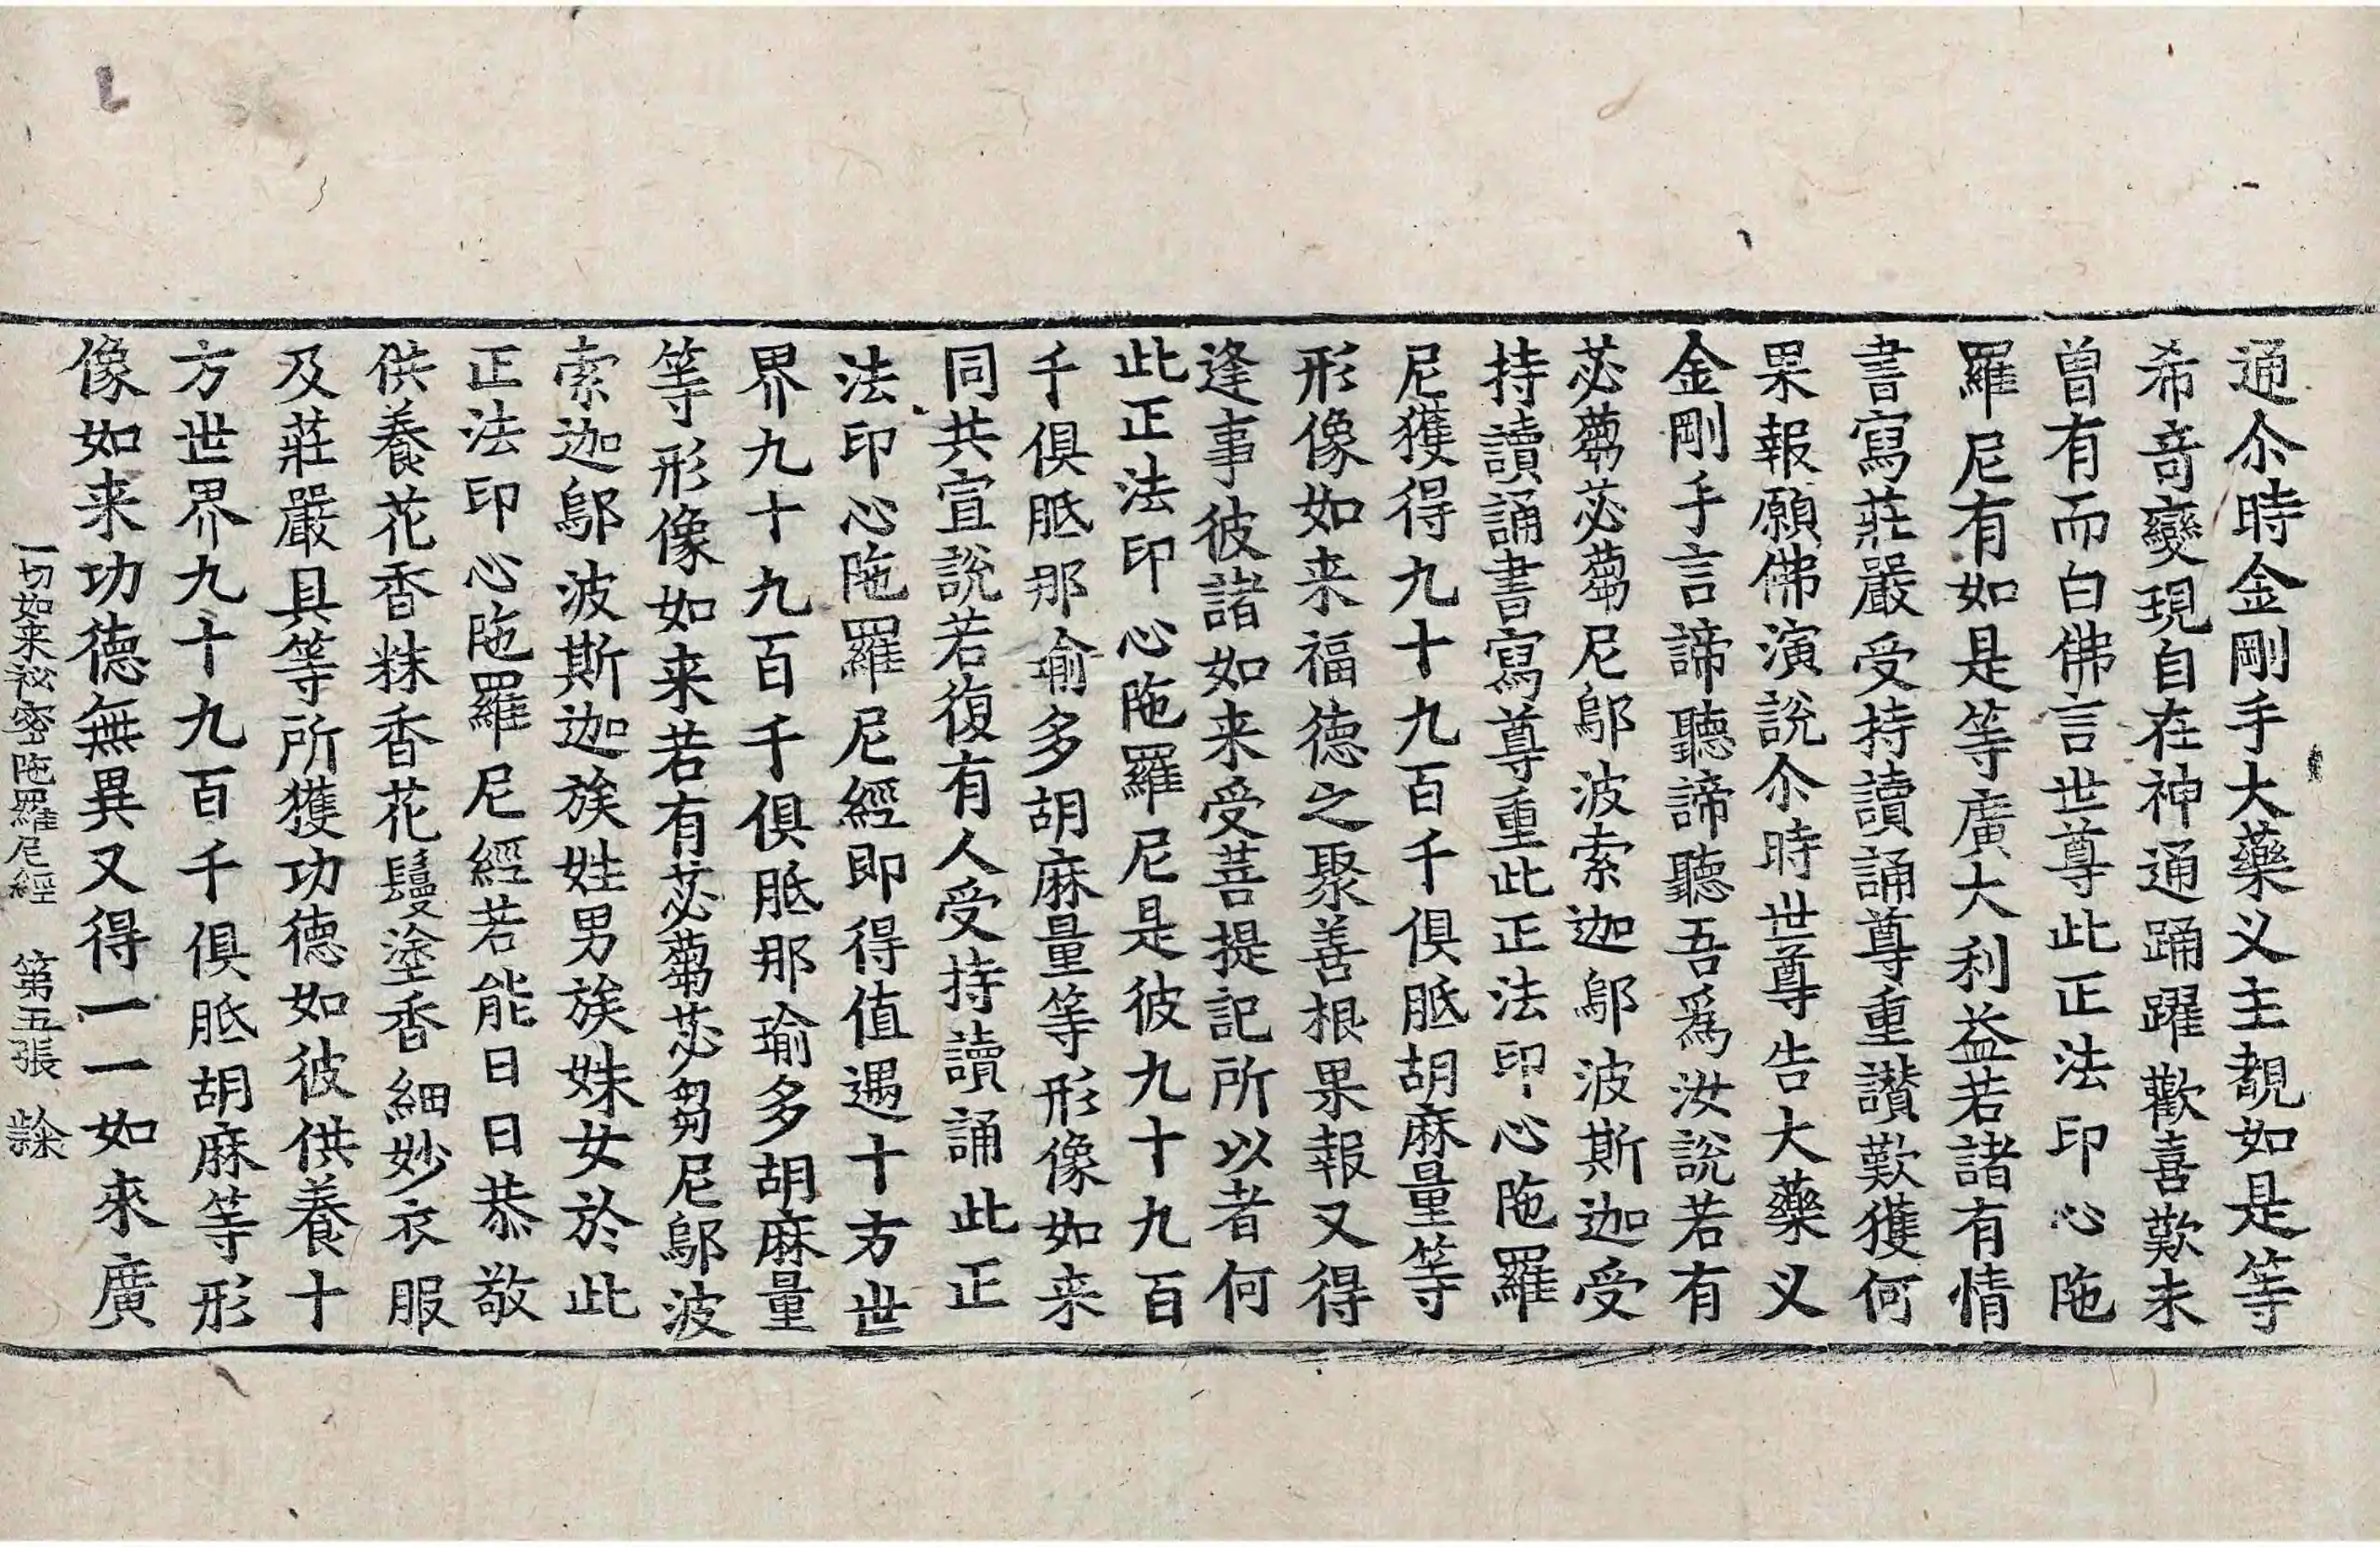 通尒時金剛手大藥义主覩如是等
希竒變現自在神通踊躍歡喜歎未
曾有而白佛言世尊此正法印心陁
羅尼有如是等廣大利益若諸有情
書寫莊嚴受持讀誦尊重讃歎獲何
果報願佛演說尒時世尊告大藥义
金剛手言諦聽諦聽吾爲汝說若有
苾蒭苾蒭尼鄔波索迦鄔波斯迦受
持讀誦書寫尊重此正法印心陁羅
尼獲得九十九百千俱胝胡麻量等
形像如来福德之聚善根果報又得
逢事彼諸如来受菩提記所以者何
此正法印心陁羅尼是彼九十九百
千俱胝那瑜多胡麻量等形像如来
同共宣說若復有人受持讀誦此正
法印心陁羅尼經即得值遇十方世
界九十九百千俱胝那瑜多胡麻量
等形像如来若有苾蒭苾芻尼鄔波
索迦鄔波斯迦族姓男族姝女於此
正法印心陁羅尼經若能日日恭敬
供養花香粖香花鬘塗香細妙衣服
及莊嚴具等所獲功德如彼供養十
方世界九十九百千俱胝胡麻等形
像如来功德無異又得一一如來廣
一切如来祕密陁羅尼經 第五張